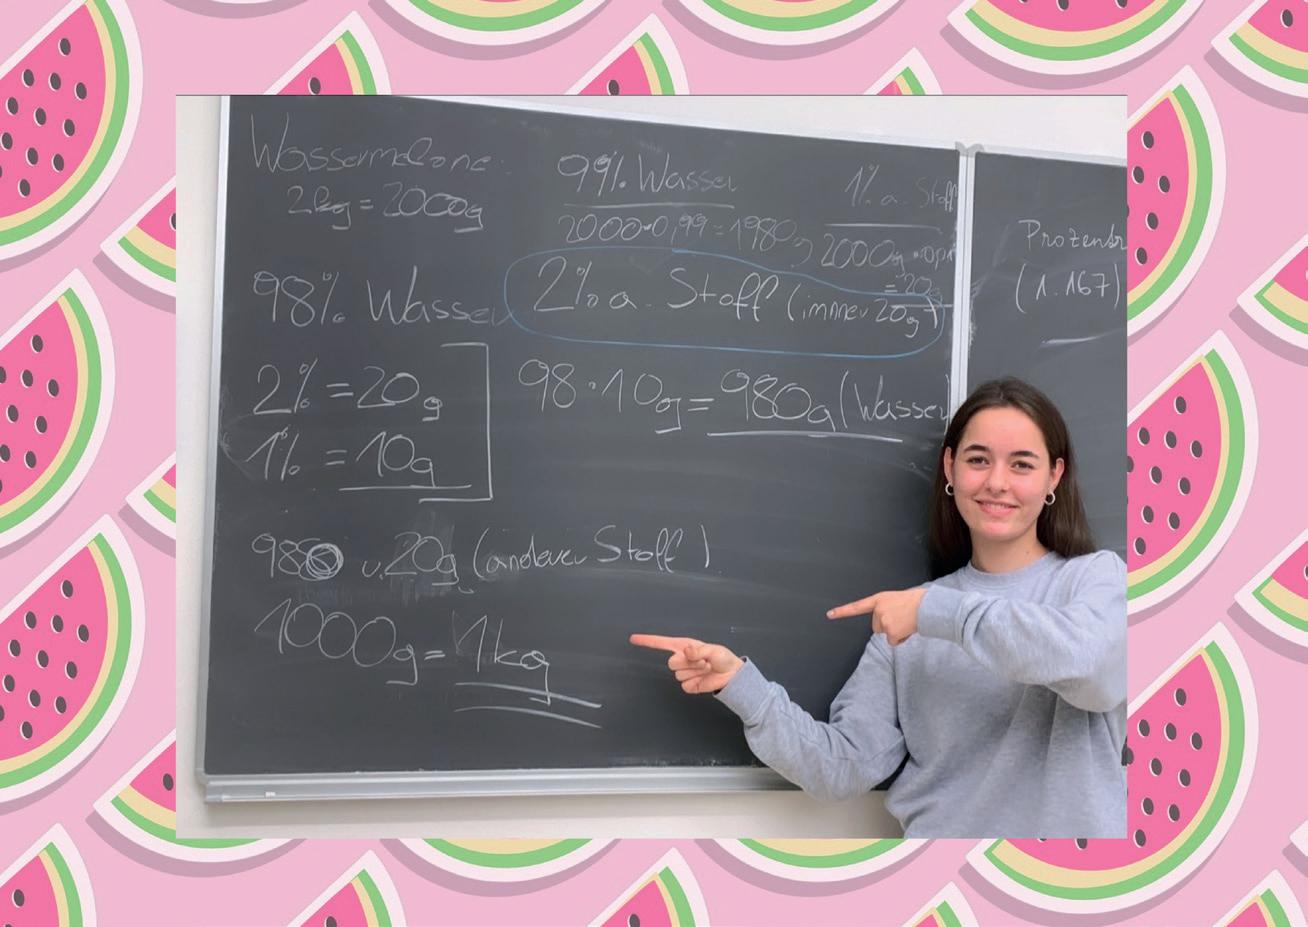 Wassermelone:
2kg = 2000g
99% Wasser
2000·0,99 = 1980g
1% a. Stoff
2000g
= 20g
98% Wasser
2% a. Stoff (immer 20g)
2% = 20g
1% = 10g
98·10g = 980g (Wasser
980 u. 20g (anderer Stoff).
1000g = 1kg
Prozentr
(1.167)